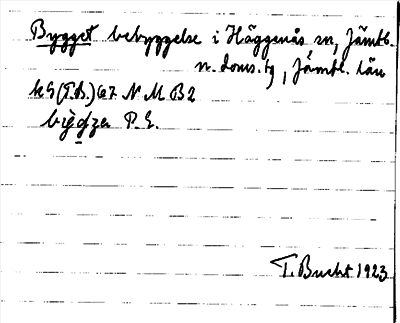 Bygget bebyggelse i Häggenås sn, Jämtl.
n. doms. tg, Jämtl. län
kG (T.B.) 67 N M B2
P. E.
T. Bucht 1923